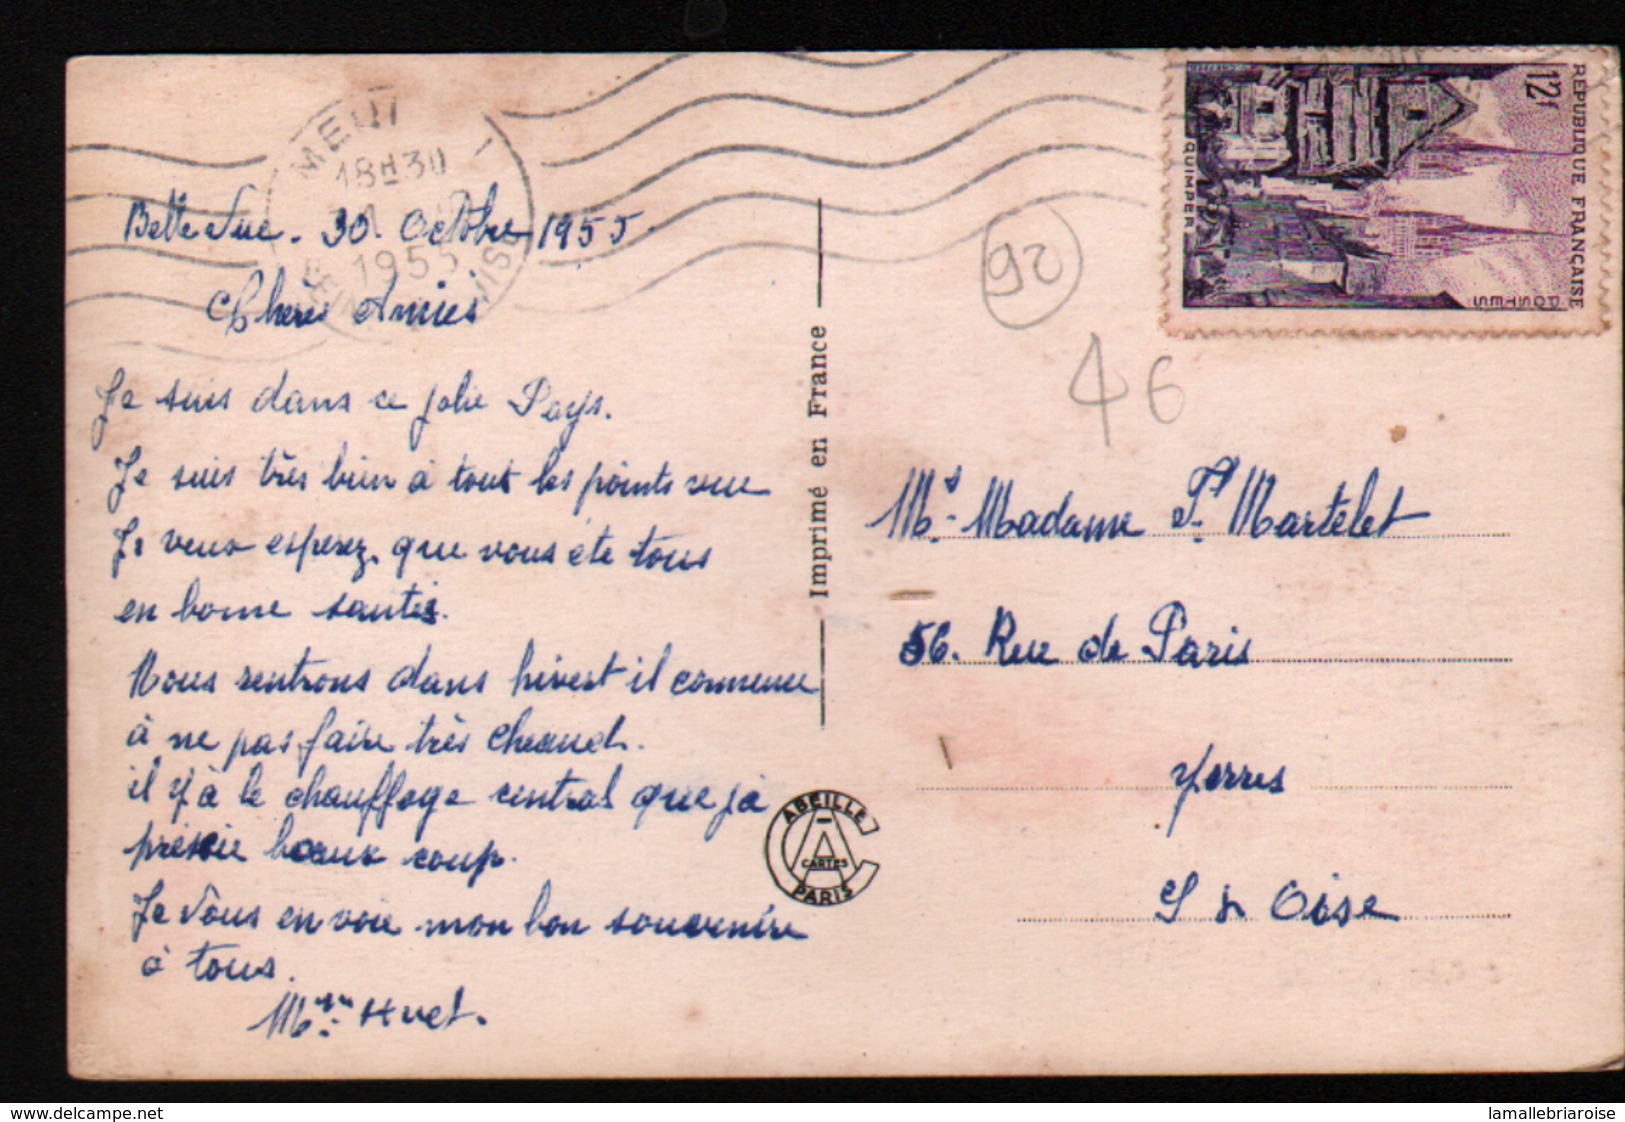 MEUDON
18H30
1955
Belle Vue. 30. Octobre 1955.
Chères Amies
Je suis dans ce jolie Pays.
Je suis très bien à tout les points vue
Je veus esperez que vous éte tous
en bonne santés.
Nous rentrons dans hivert il commence
à ne pas faire très cheaud.
il y à le chauffage central que ja
présie beaux coup.
Je vous en voie mon bon souvenire
à tous.
Mme Huet.
Imprimé en France
ABEILLE
CARTES
PARIS
12f
REPUBLIQUE FRANÇAISE
POSTES
QUIMPER
92
46
Mr. Madame P. Martelet
56. Rue de Paris
Yerres
S & Oise
delcampe.net
lamallebriaroise